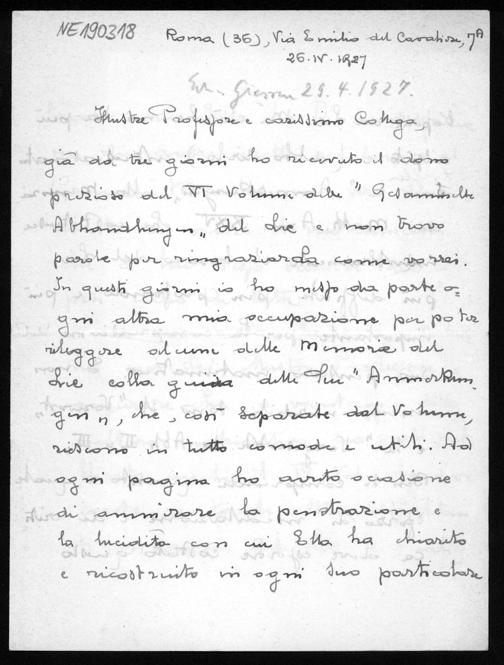 NE190318
Roma (36), Via Emilio del Cavaliere, 7A
26.IV.1927
Giessen 29.4.1927.
Illustre Professore e carissimo Collega,
già da tre giorni ho ricevuto il dono
prezioso del VI Volume delle "Gesammelte
Abhandlungen„ del Lie e non trovo
parole per ringraziarLa come vorrei.
In questi giorni io ho messo da parte o-
gni altra mia occupazione per poter
rileggere alcune delle Memorie del
Lie colla guida delle Sue "Anmerkun-
gen„, che, così separate dal Volume,
riescono in tutto comode e utili. Ad
ogni pagina ho avuto occasione
di ammirare la penetrazione e
la lucidità con cui Ella ha chiarito
e ricostruito in ogni suo particolare